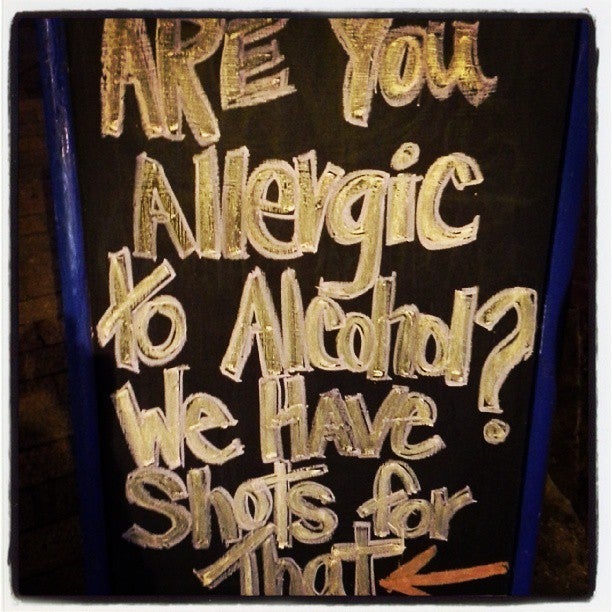 ARE You
Allergic
to Alcohol?
We HAVE
Shots for
That